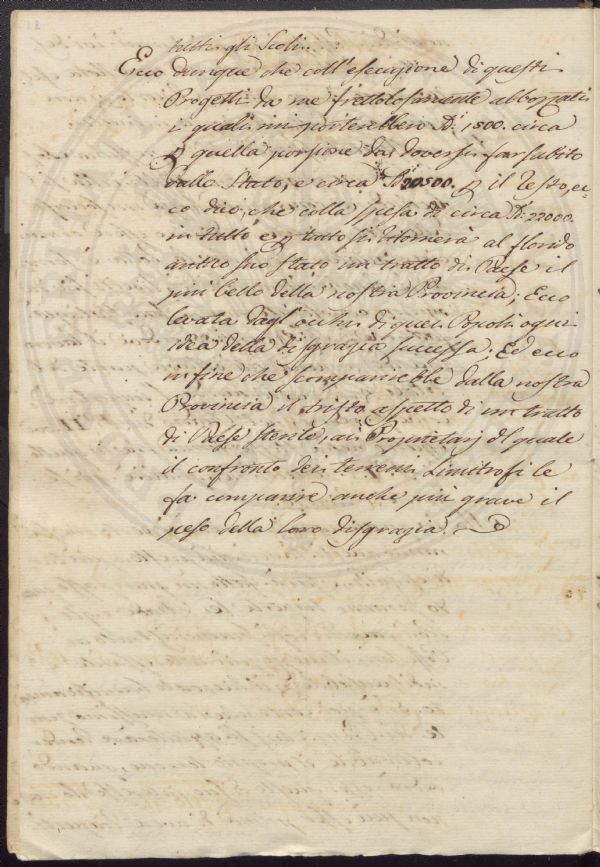 tutti gli Scoli.
Ecco dunque che coll'esecuzione di questi
Progetti da me frettolosamente abbozzati
i quali mi porterebbero D.i 1500. circa
p quella porzione da doversi far subito
dallo Stato, e circa D.i 20500. p il Resto, ec=
co dico, che colla spesa di circa D.i 22000.
in tutto e p tutto si ritornerà al florido
antico suo stato un tratto di Paese il
più bello della nostra Provincia; Ecco
levata dagl'occhi di quei Popoli ogni
idea della disgrazia successa; Ed ecco
infine che scomparirebbe dalla nostra
Provincia il tristo aspetto di un tratto
di Paese sterile, ai Proprietarj del quale
il confronto dei terreni Limitrofi le
fa comparire anche più grave il
peso della loro disgrazia.